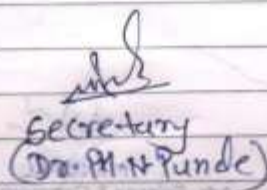 Secretary
(Dr. M.N Punde)